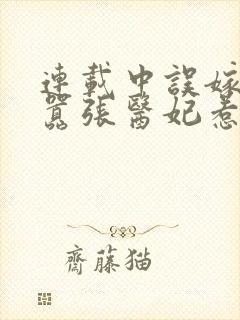 連載中誤嫁
囂張醫妃惹
齋藤猫